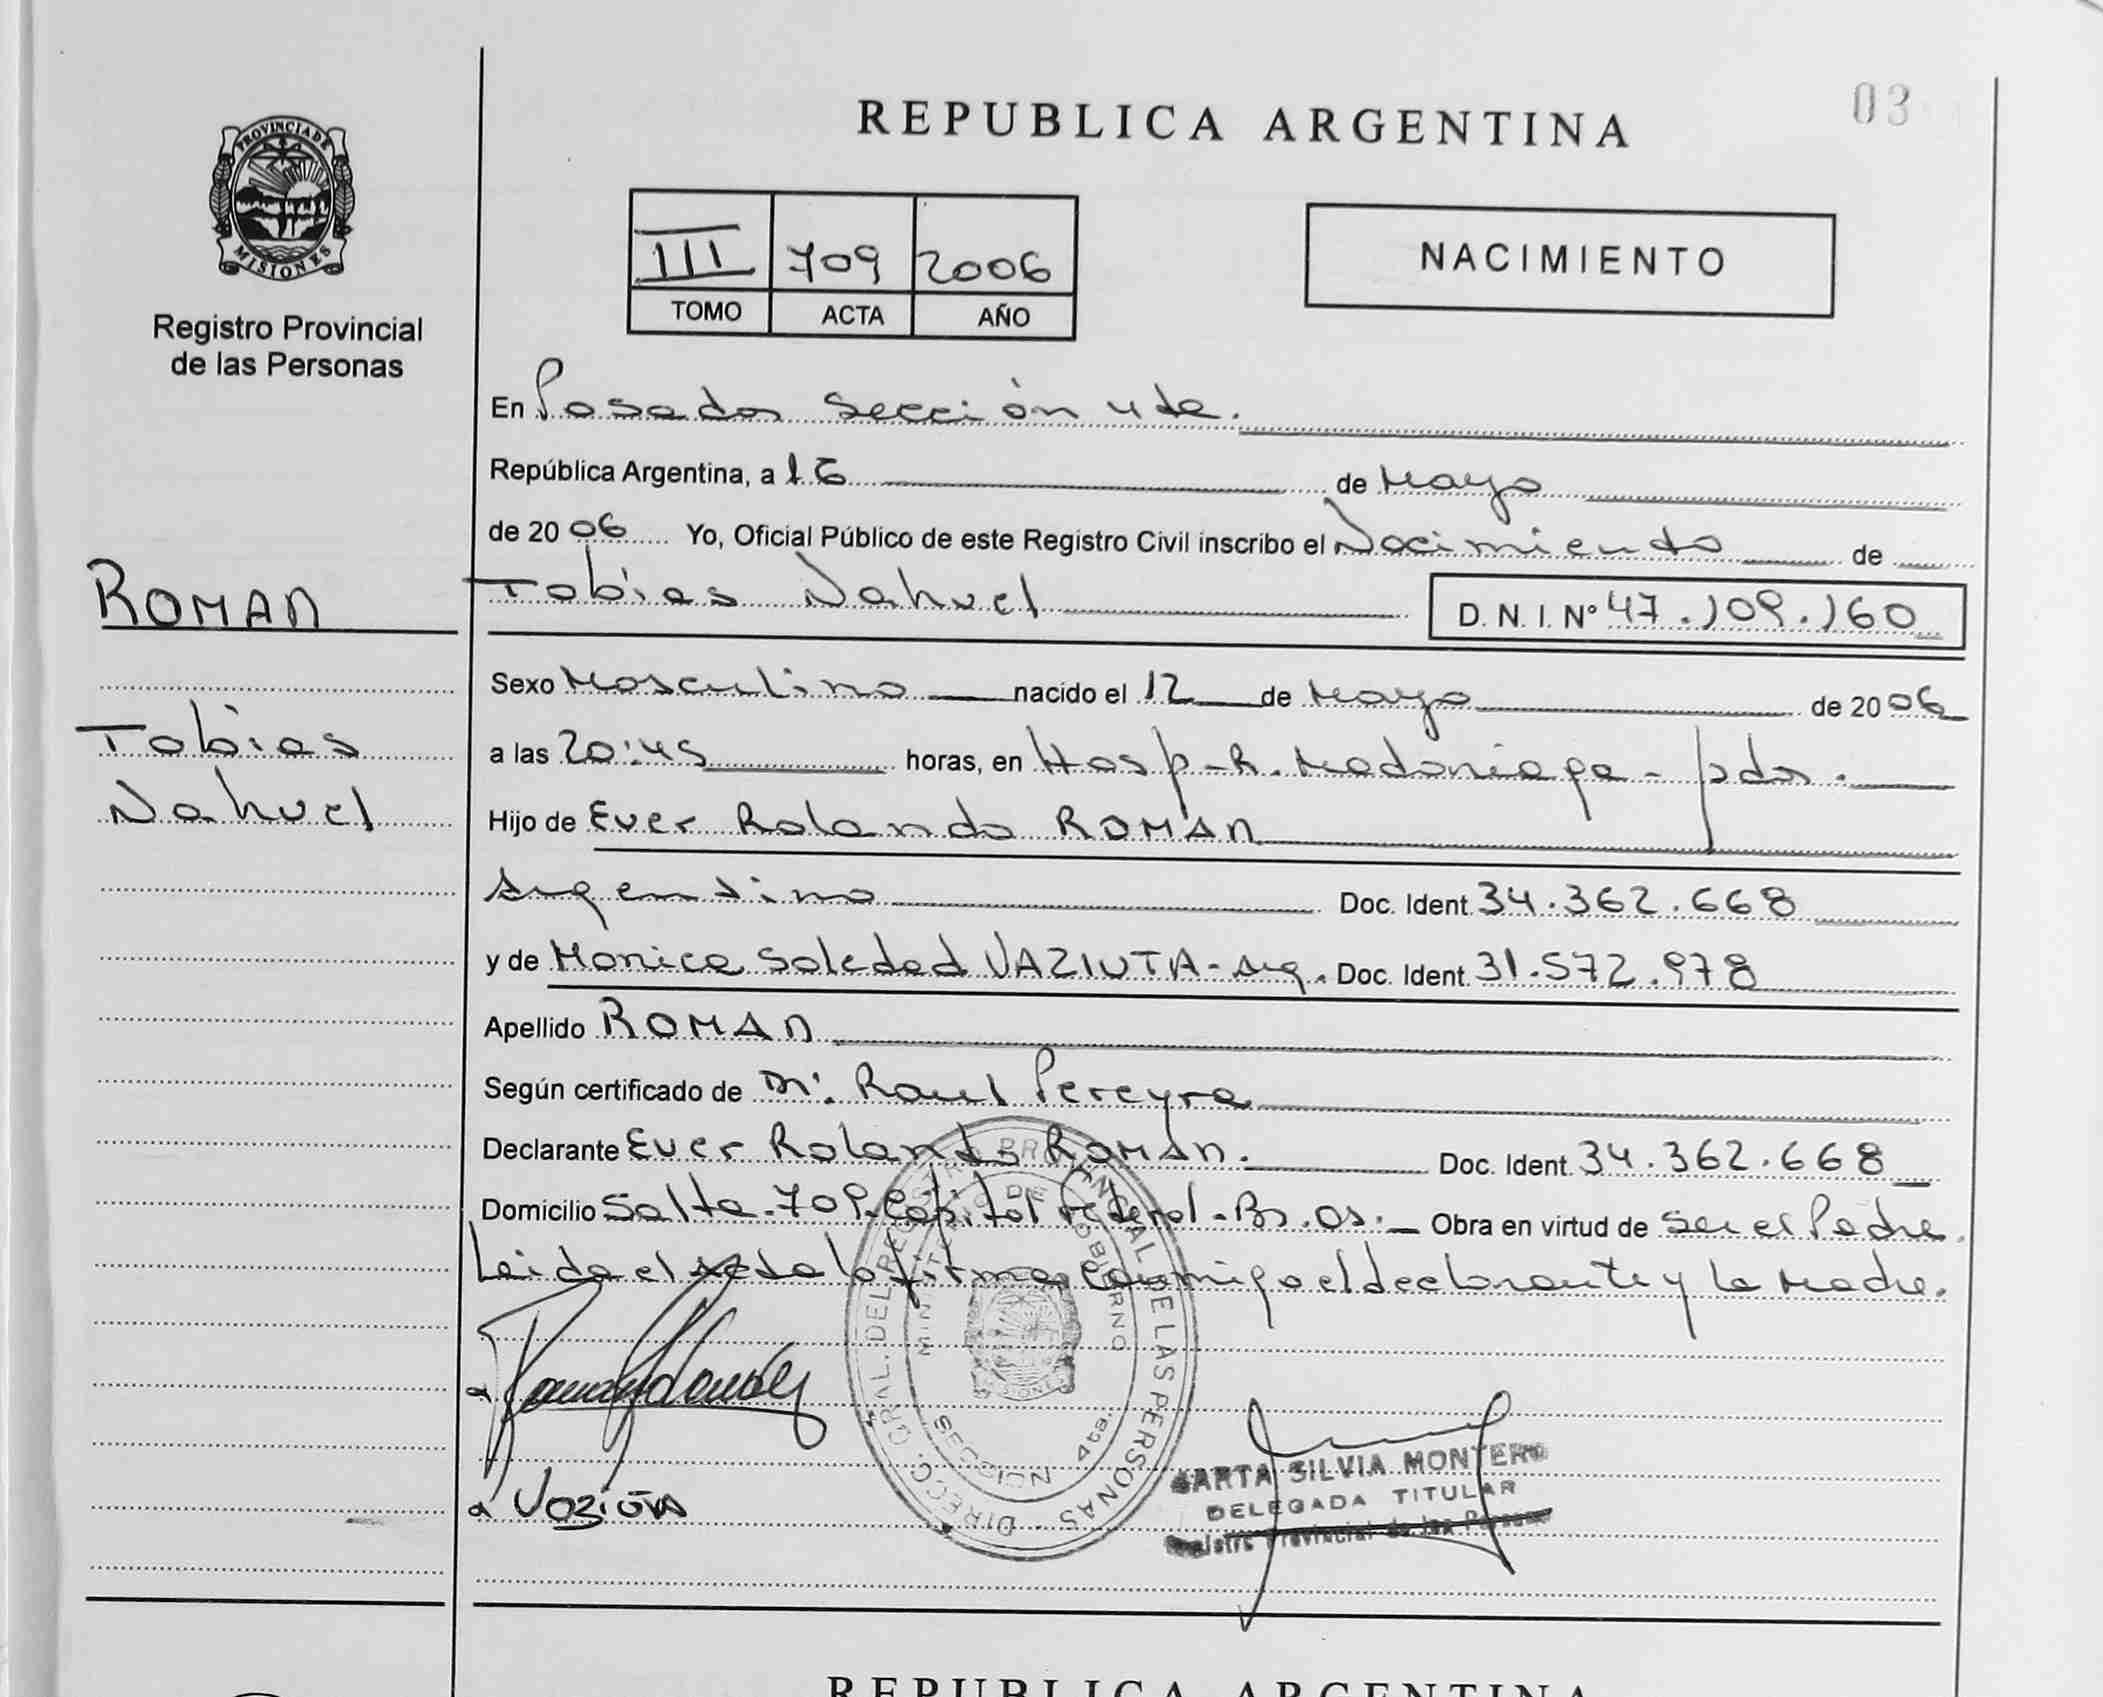 REPUBLICA ARGENTINA
03
PROVINCIA DE
MISIONES
Registro Provincial
de las Personas
III 709 2006
TOMO ACTA AÑO
NACIMIENTO
En Posadas Sección 4ta.
República Argentina, a 16 de Mayo
de 2006 Yo, Oficial Público de este Registro Civil inscribo el Nacimiento de
ROMAN
Tobias Nahuel D. N. I. Nº 47.109.160
Sexo Masculino nacido el 12 de Mayo de 2006
Tobias
a las 20:45 horas, en Hosp-R. Madariaga - pdas.
Nahuel
Hijo de Ever Rolando ROMAN
Argentino Doc. Ident. 34.362.668
y de Monica Soledad VAZIUTA - Arg. Doc. Ident. 31.572.978
Apellido ROMAN
Según certificado de Dr. Raul Pereyra
Declarante Ever Rolando ROMAN. Doc. Ident. 34.362.668
Domicilio Salta.709.Capital Federal - Bs.As. Obra en virtud de ser el Padre
Leida el acta la firma conmigo el declarante y la Madre.
DIRECC. GRAL. DEL REGISTRO PROVINCIAL DE LAS PERSONAS
MINISTERIO DE GOBIERNO
MISIONES
SECCION 4ta.
SILVIA MONTERO
DELEGADA TITULAR
Registro Provincial de las Personas
REPUBLICA ARGENTINA